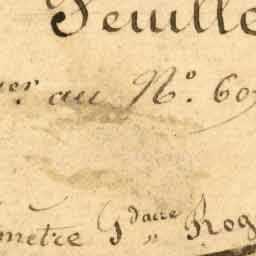 Feuille
er au Nº. 60
mètre Gdarre Rog